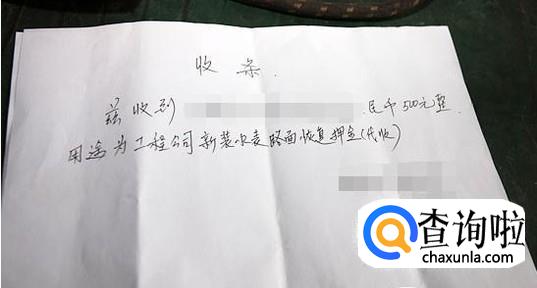 收条.
兹收到 民币500元整.
用途为工程公司新装水表路面恢复押金(代收)
查询啦
chaxunla.com